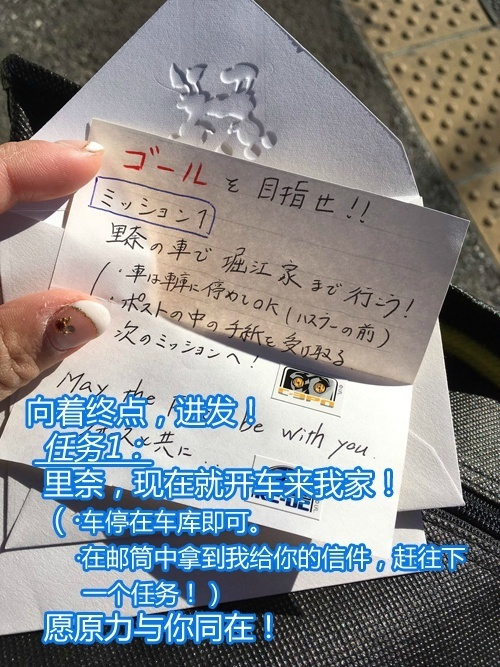 ゴールを目指せ!!
ミッション1
里奈の車で堀江家まで行こう!
(・車は車庫に停めてOK(ハスラーの前)
・ポストの中の手紙を受け取る
次のミッションへ!
May the be with you.
フォースと共に...
C-3PO
向着终点，进发！
任务1：
里奈，现在就开车来我家！
（·车停在车库即可。
·在邮筒中拿到我给你的信件，赶往下
一个任务！）
愿原力与你同在！